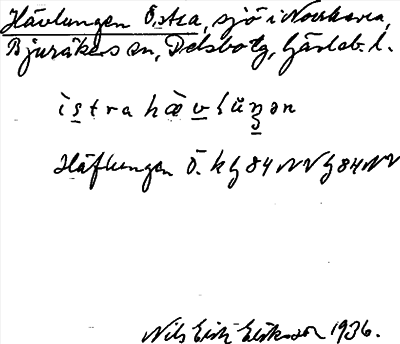 Hävlungen Östra, sjö i Norrhavra,
Bjuråkers sn, Delsbo tg, Gävleb. l.
ìstra hæ̀vlüŋən
Häflungen Ö. kg 84 NV g 84 NV
Nils Erik Eriksson 1936.